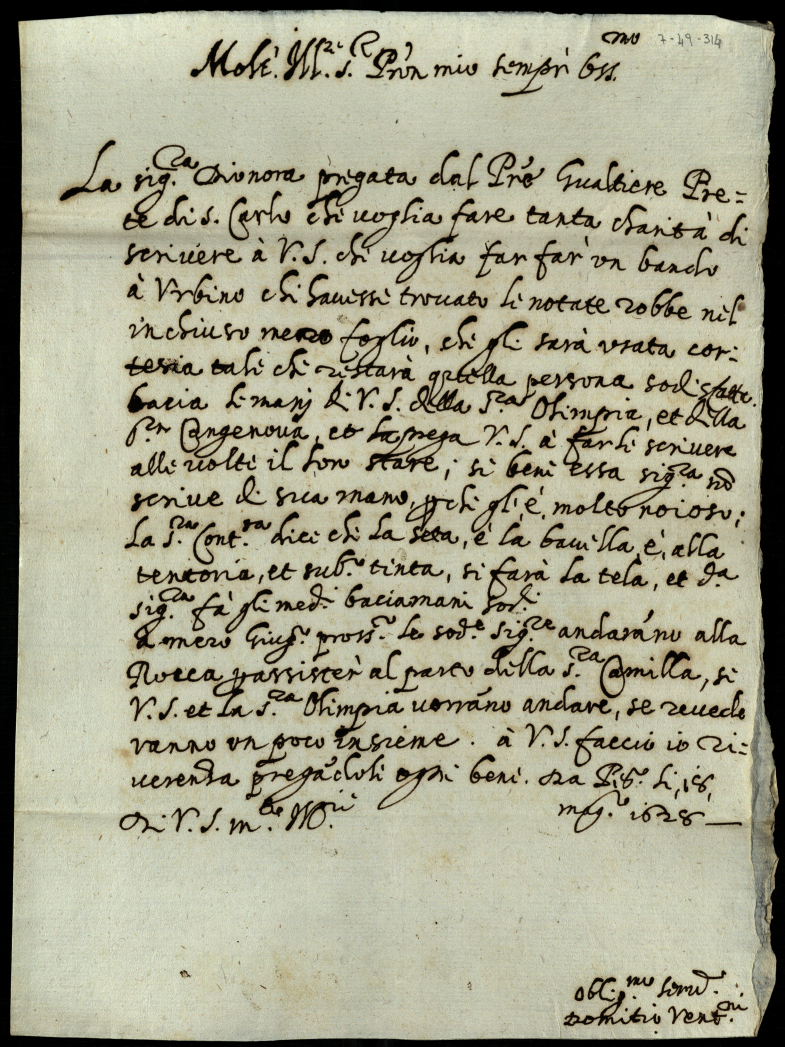 7-49-314
Molt' Ill.re S.r P.rōn mio sempr' oss.mo
La sig.ra Dionora pregata dal Pr̄e Gualtiere Pre=
te di S. Carlo che voglia fare tanta charità di
scrivere à V.S. che voglia far far' un bando
à Urbino chi havesse trovato le notate robbe nel
inchiuso mezzo foglio, che gli sarà usata cor:
tesia tale che restarà quella persona sodisfatte.
bacia le manj di V.S. della S.ra Olimpia, et della
S.ra Cangenova, et la prega V.S. à farle scrivere
alle volte il loro stare, se bene essa sig.ra nō
scrive di sua mano, pche gli è molto noioso;
La S.ra Cont.ra dice che la seta, è la bavella, è, alla
tentoria, et sub.o tinta, si farà la tela, et d.a
sig.ra fà gli med.i baciamani sod.i
a mezo Giug.o pross.o le sod.e sig.re andaranno alla
Rocca p assister' al parto della S.ra Camilla, se
V.S. et la S.ra Olimpia vorranno andare, se revede
ranno un poco insieme. à V.S. faccio io ri=
verenza pregādole ogni bene. Da li, 18,
Di V.S. m.to Ill.re mag.o 1628
obblig.mo serv.
Domitio Vent.ni